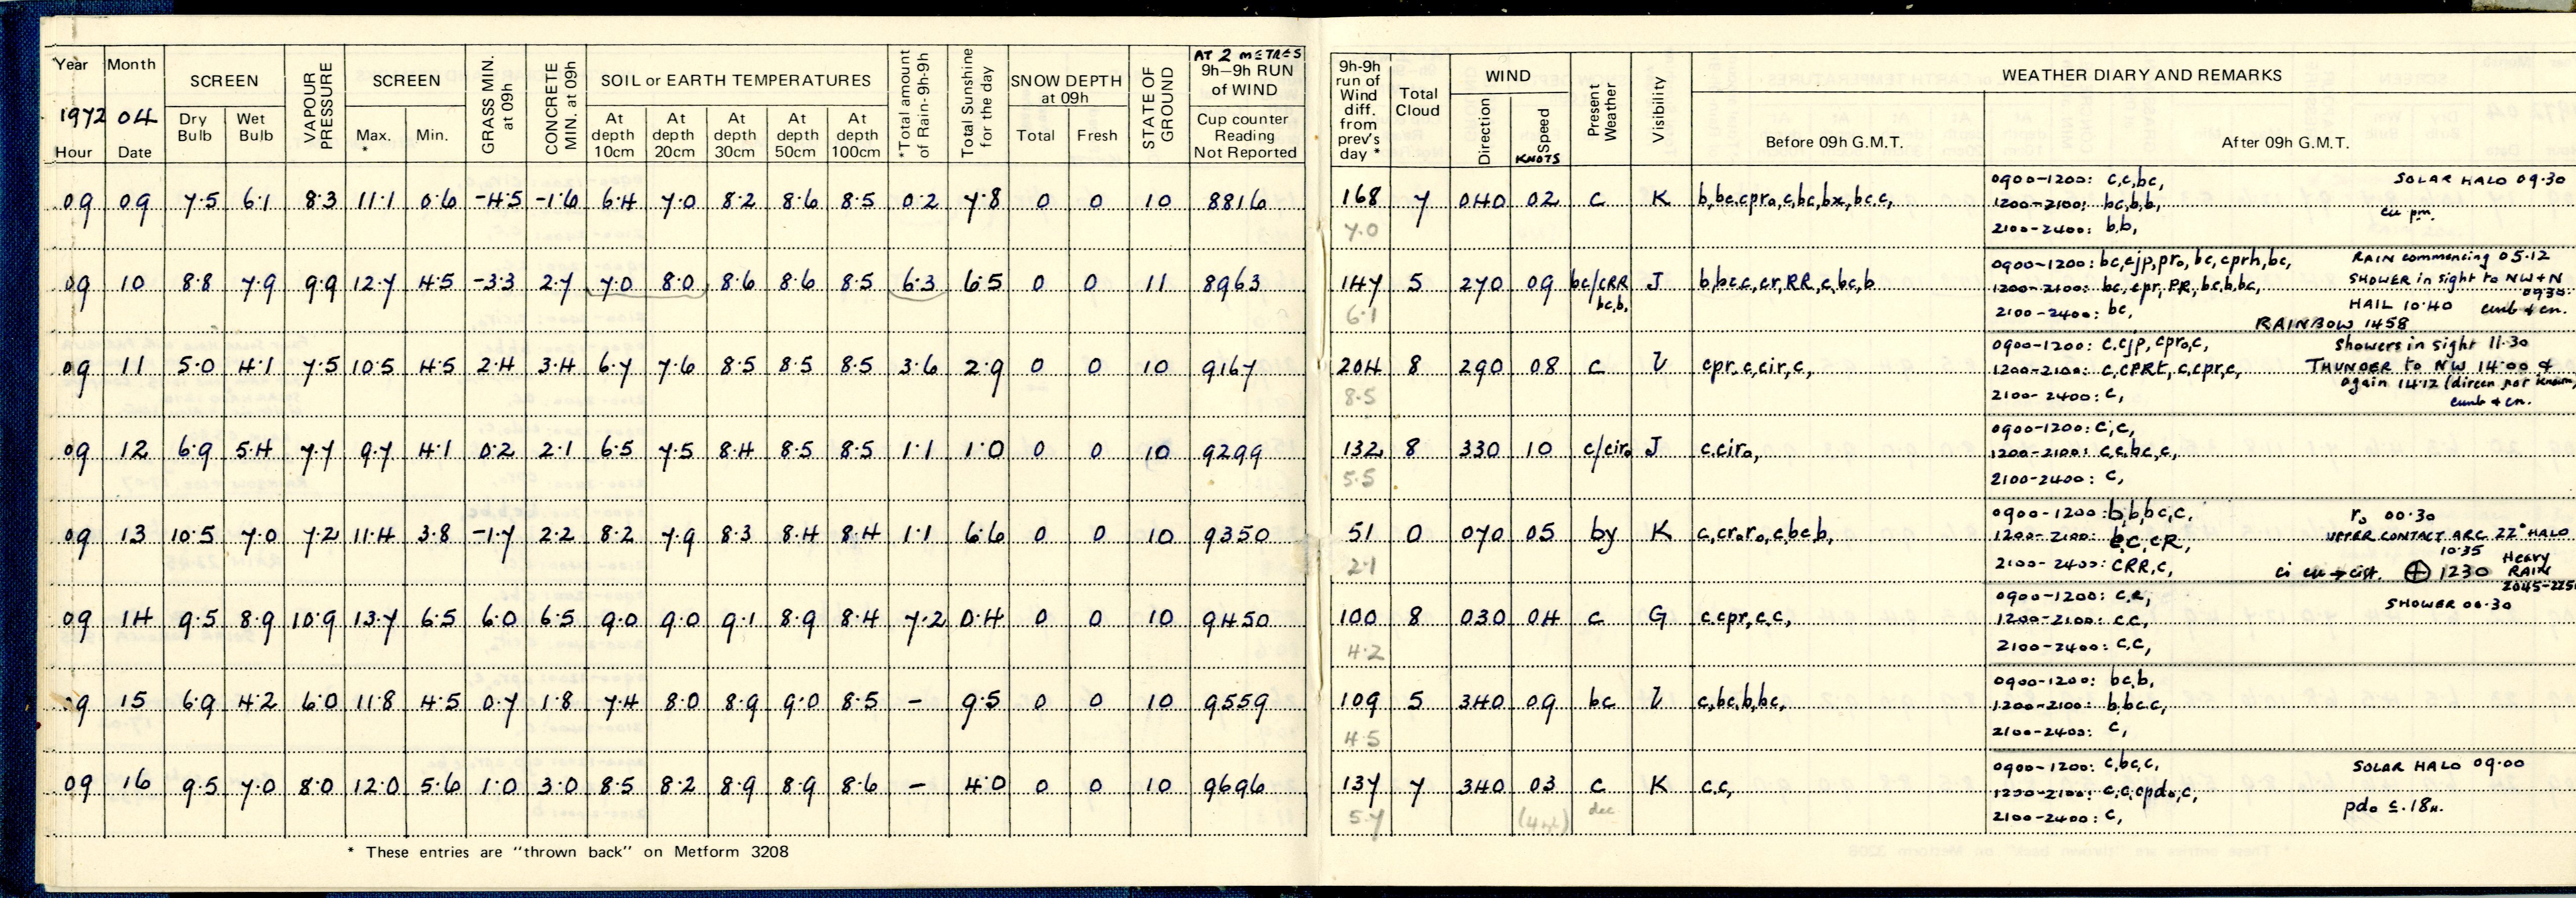 Year Month SCREEN VAPOUR PRESSURE SCREEN GRASS MIN. at 09h CONCRETE MIN. at 09h SOIL or EARTH TEMPERATURES *Total amount of Rain-9h-9h Total Sunshine for the day SNOW DEPTH at 09h STATE OF GROUND AT 2 METRES 9h—9h RUN of WIND 9h-9h run of Wind diff. from prev's day * Total Cloud WIND Present Weather Visibility WEATHER DIARY AND REMARKS
1972 04 Dry Bulb Wet Bulb Max. * Min. At depth 10cm At depth 20cm At depth 30cm At depth 50cm At depth 100cm Total Fresh Cup counter Reading Not Reported Direction Speed KNOTS Before 09h G.M.T. After 09h G.M.T.
Hour Date
09 09 7.5 6.1 8.3 11.1 0.6 -4.5 -1.6 6.4 7.0 8.2 8.6 8.5 0.2 7.8 0 0 10 8816 168 7 040 02 c K b,bc,cpro,c,bc,bx,bc,c, 0900-1200: c,c,bc, SOLAR HALO 09.30
1200-2100: bc,b,b, cu pm.
7.0 2100-2400: b,b,
09 10 8.8 7.9 9.9 12.7 4.5 -3.3 2.7 7.0 8.0 8.6 8.6 8.5 6.3 6.5 0 0 11 8963 147 5 270 09 bc/cRR bc,b, J b,bc,c,cr,RR,c,bc,b 0900-1200: bc,cjp,pro,bc,cprh,bc, RAIN commencing 05.12
1200-2100: bc,cpr,PR,bc,b,bc, SHOWER in sight to NW+N 0930.
6.1 2100-2400: bc, HAIL 10.40 cumb + cn.
RAINBOW 1458
09 11 5.0 4.1 7.5 10.5 4.5 2.4 3.4 6.7 7.6 8.5 8.5 8.5 3.6 2.9 0 0 10 9167 204 8 290 08 c cpr,c,cir,c, 0900-1200: c,cjp,cpro,c, Showers in sight 11.30
1200-2100: c,CPRt,c,cpr,c, THUNDER to NW 14.00 &
again 1412 (direcn not known)
8.5 2100-2400: c, cumb + cn.
09 12 6.9 5.4 7.7 9.7 4.1 0.2 2.1 6.5 7.5 8.4 8.5 8.5 1.1 1.0 0 0 10 9299 132 8 330 10 c/ciro J c,ciro, 0900-1200: c,c,
1200-2100: c,c,bc,c,
5.5 2100-2400: c,
09 13 10.5 7.0 7.2 11.4 3.8 -1.7 2.2 8.2 7.9 8.3 8.4 8.4 1.1 6.6 0 0 10 9350 51 0 070 05 by K c,cro,ro,c,bc,b, 0900-1200: b,b,bc,c, ro 00.30
1200-2100: c,cR, UPPER CONTACT ARC 22° HALO 10.35
2.1 2100-2400: CRR,c, ci cu → cist. ⊕ 1230 Heavy RAIN
09 14 9.5 8.9 10.9 13.7 6.5 6.0 6.5 9.0 9.0 9.1 8.9 8.4 7.2 0.4 0 0 10 9450 100 8 030 04 c G c,cpr,c,c, 0900-1200: c,c, SHOWER 00.30
1200-2100: c,c,
4.2 2100-2400: c,c,
09 15 6.9 4.2 6.0 11.8 4.5 0.7 1.8 7.4 8.0 8.9 9.0 8.5 - 9.5 0 0 10 9559 109 5 340 09 bc c,bc,b,bc, 0900-1200: bc,b,
1200-2100: b,bc,c,
4.5 2100-2400: c,
09 16 9.5 7.0 8.0 12.0 5.6 1.0 3.0 8.5 8.2 8.9 8.9 8.6 - 4.0 0 0 10 9696 137 7 340 03 c K c,c, 0900-1200: c,bc,c, SOLAR HALO 09.00
1200-2100: c,c,cpdo,c, pdo c.18H.
5.7 dec 2100-2400: c,
* These entries are "thrown back" on Metform 3208